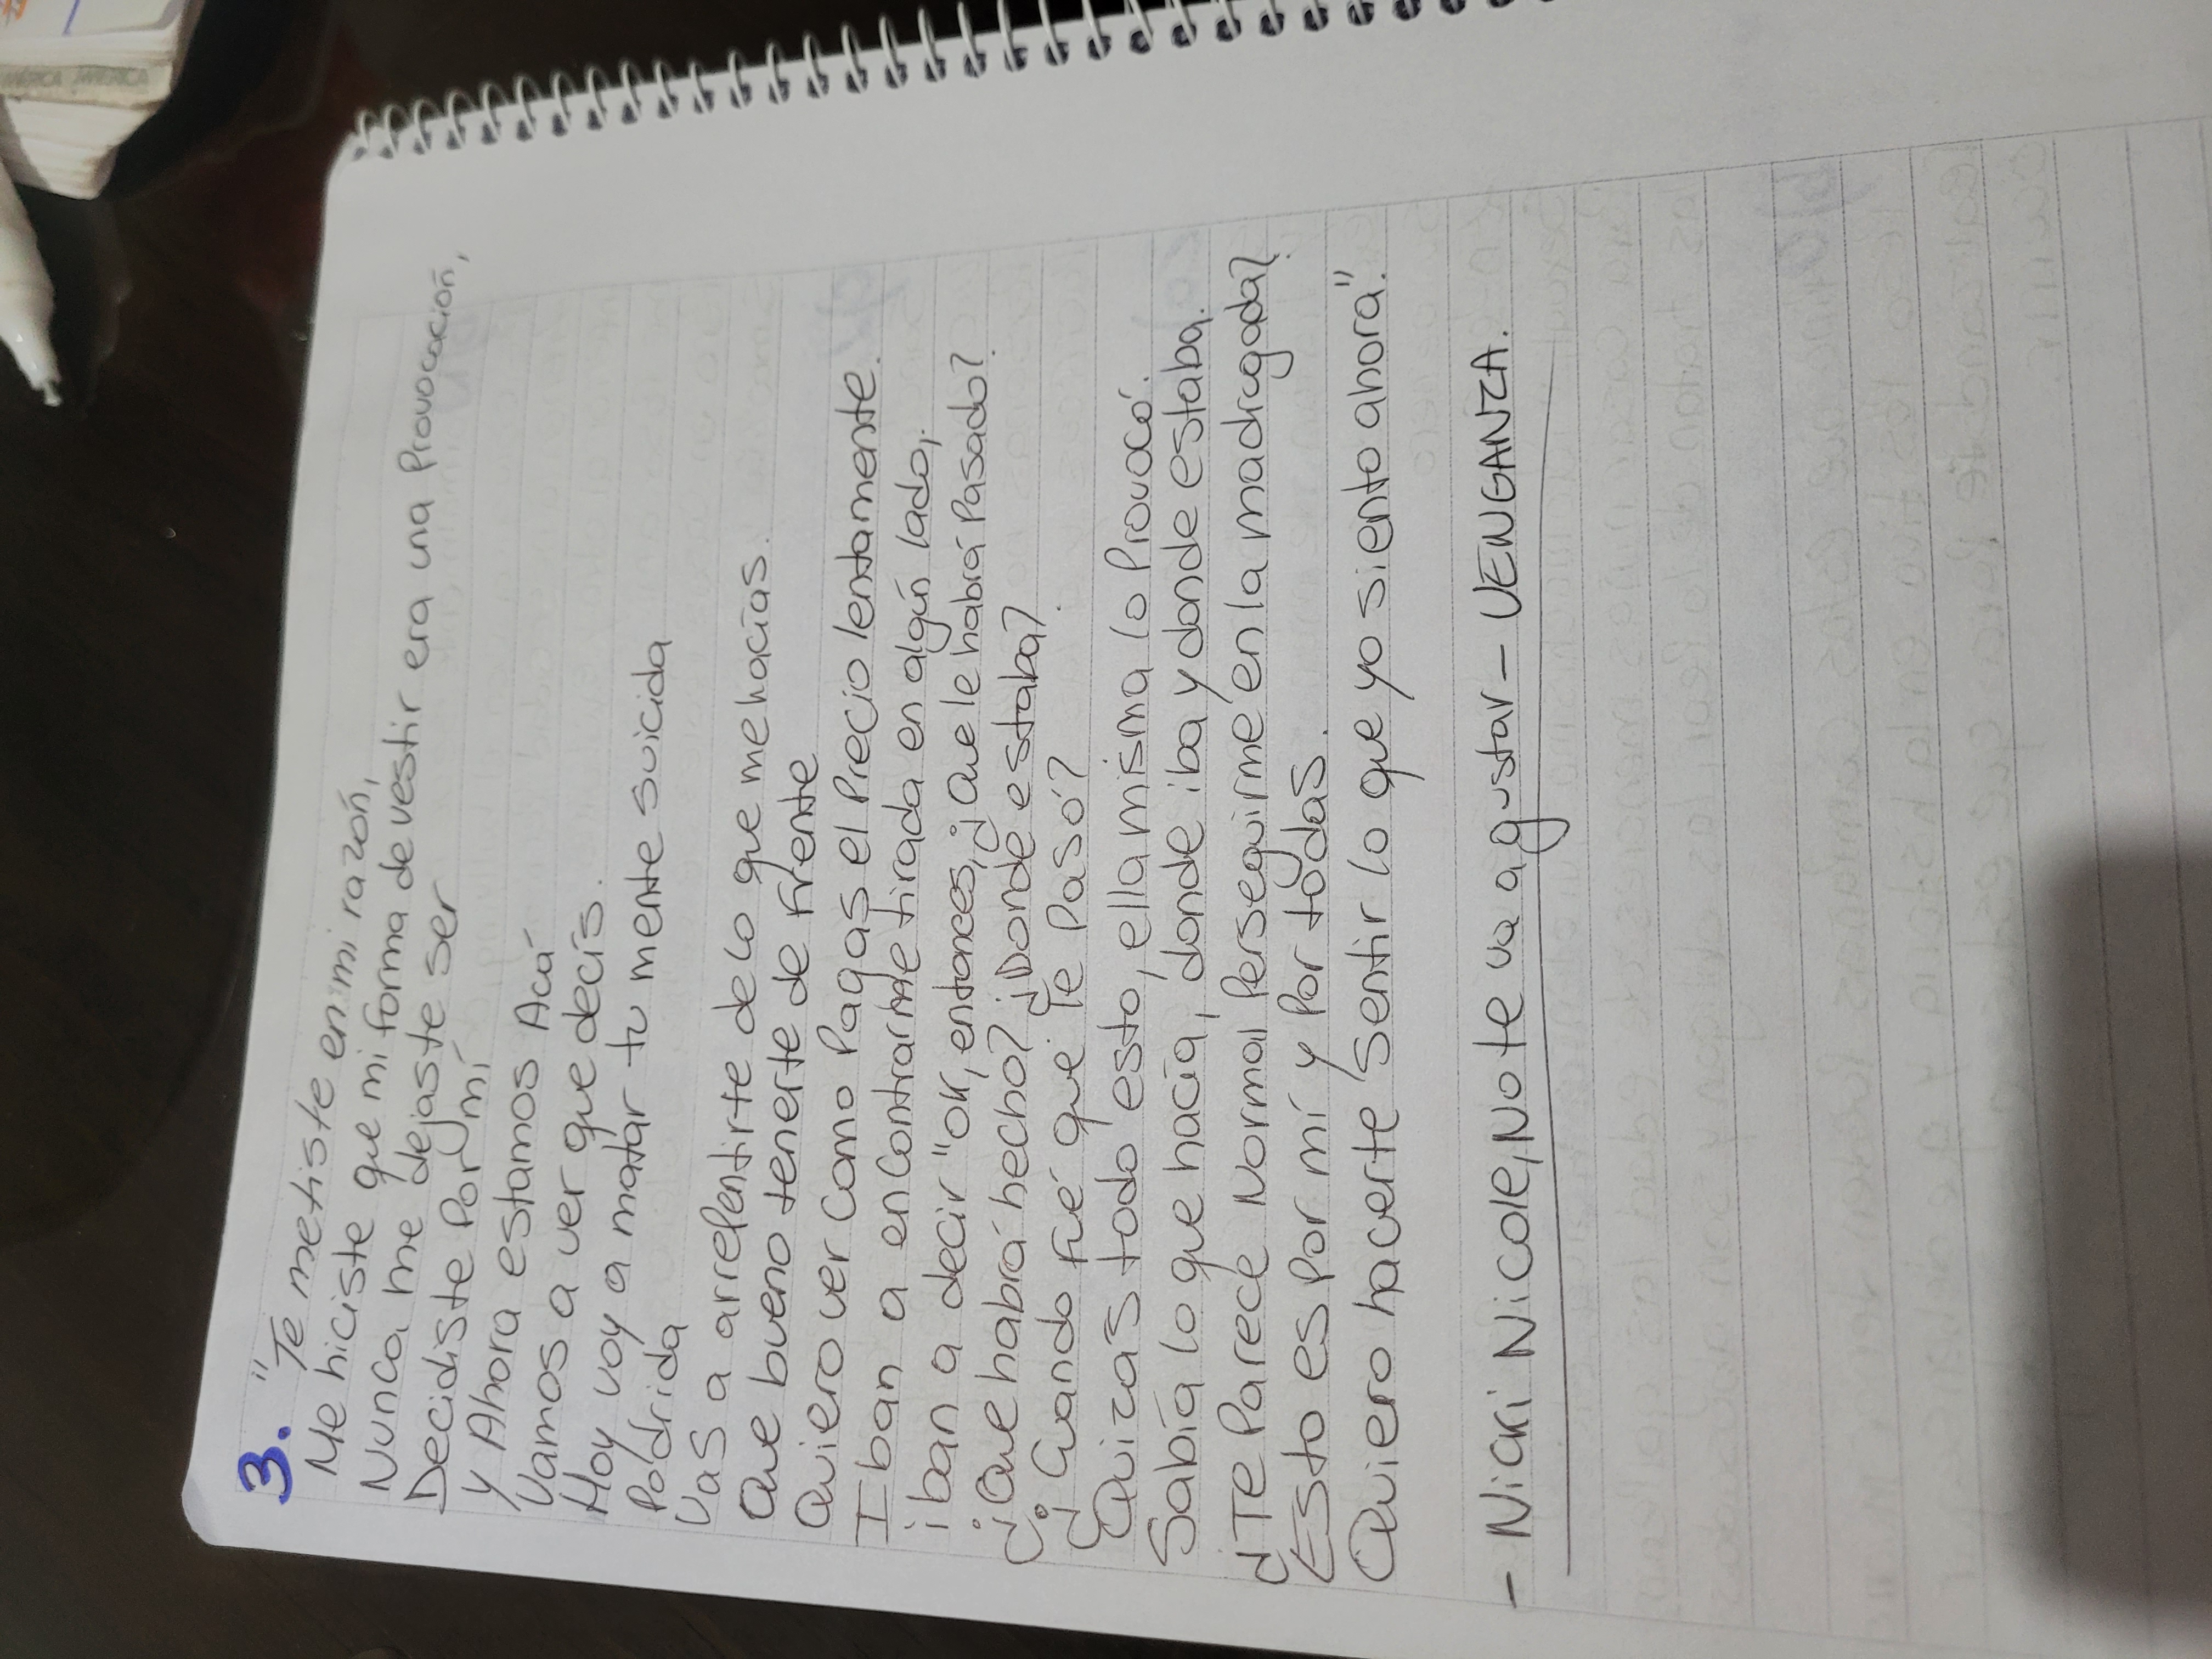 3. "Te metiste en mi razón,
Me hiciste que mi forma de vestir era una Provocación,
Nunca me dejaste ser
Decidiste Por mí
y Ahora estamos Acá
Vamos a ver que decís.
Hoy voy a matar tu mente suicida
Podrida
Vas a arrepentirte de lo que me hacías.
Que bueno tenerte de frente
Quiero ver como Pagas el Precio lentamente.
Iban a encontrarme tirada en algún lado,
iban a decir "ok, entonces, ¿Que le habrá Pasado?
¿Que habrá hecho? ¿Donde estaba?
¿Cuando fué que Te Pasó?
Quizas todo esto, ella misma lo Provocó.
Sabía lo que hacía, donde iba y donde estaba.
¿Te Parece Normal Perseguirme en la madrugada?
Esto es Por mí y Por todas.
Quiero hacerte sentir lo que yo siento ahora".
- Nicki Nicole, No te va a gustar - VENGANZA.